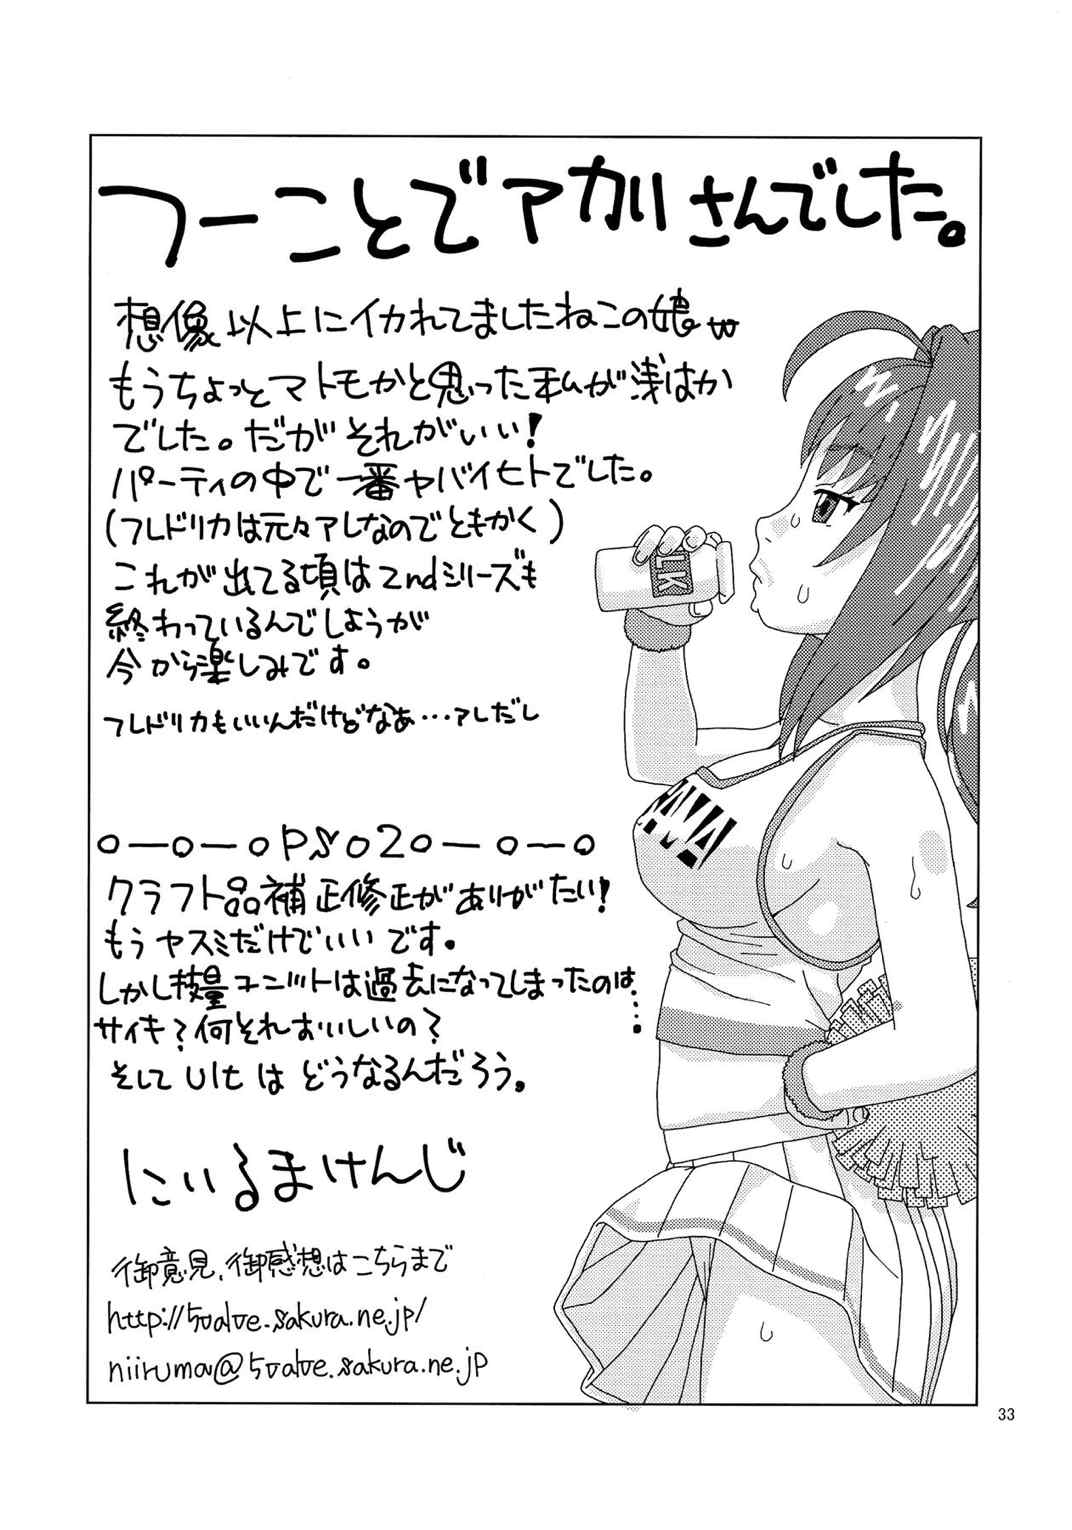 つーことでアカリさんでした。
想像以上にイカれてましたねこの娘w
もうちょっとマトモかと思った私が浅はか
でした。だがそれがいい！
パーティの中で一番ヤバイヒトでした。
（フレドリカは元々アレなのでともかく）
これが出てる頃は2ndシリーズも
終わっているんでしようが
今から楽しみです。
フレドリカもいいんだけどなぁ…アレだし
LK
o—o—oPSo2o—o—o
クラフト品補正修正がありがたい！
もうヤスミだけでいいです。
しかし技量ユニットは過去になってしまったのは…
サイキ？何それおいしいの？
そしてUltはどうなるんだろう。
にいるまけんじ
御意見、御感想はこちらまで
http://5valve.sakura.ne.jp/
niiruma@5valve.sakura.ne.jp
33